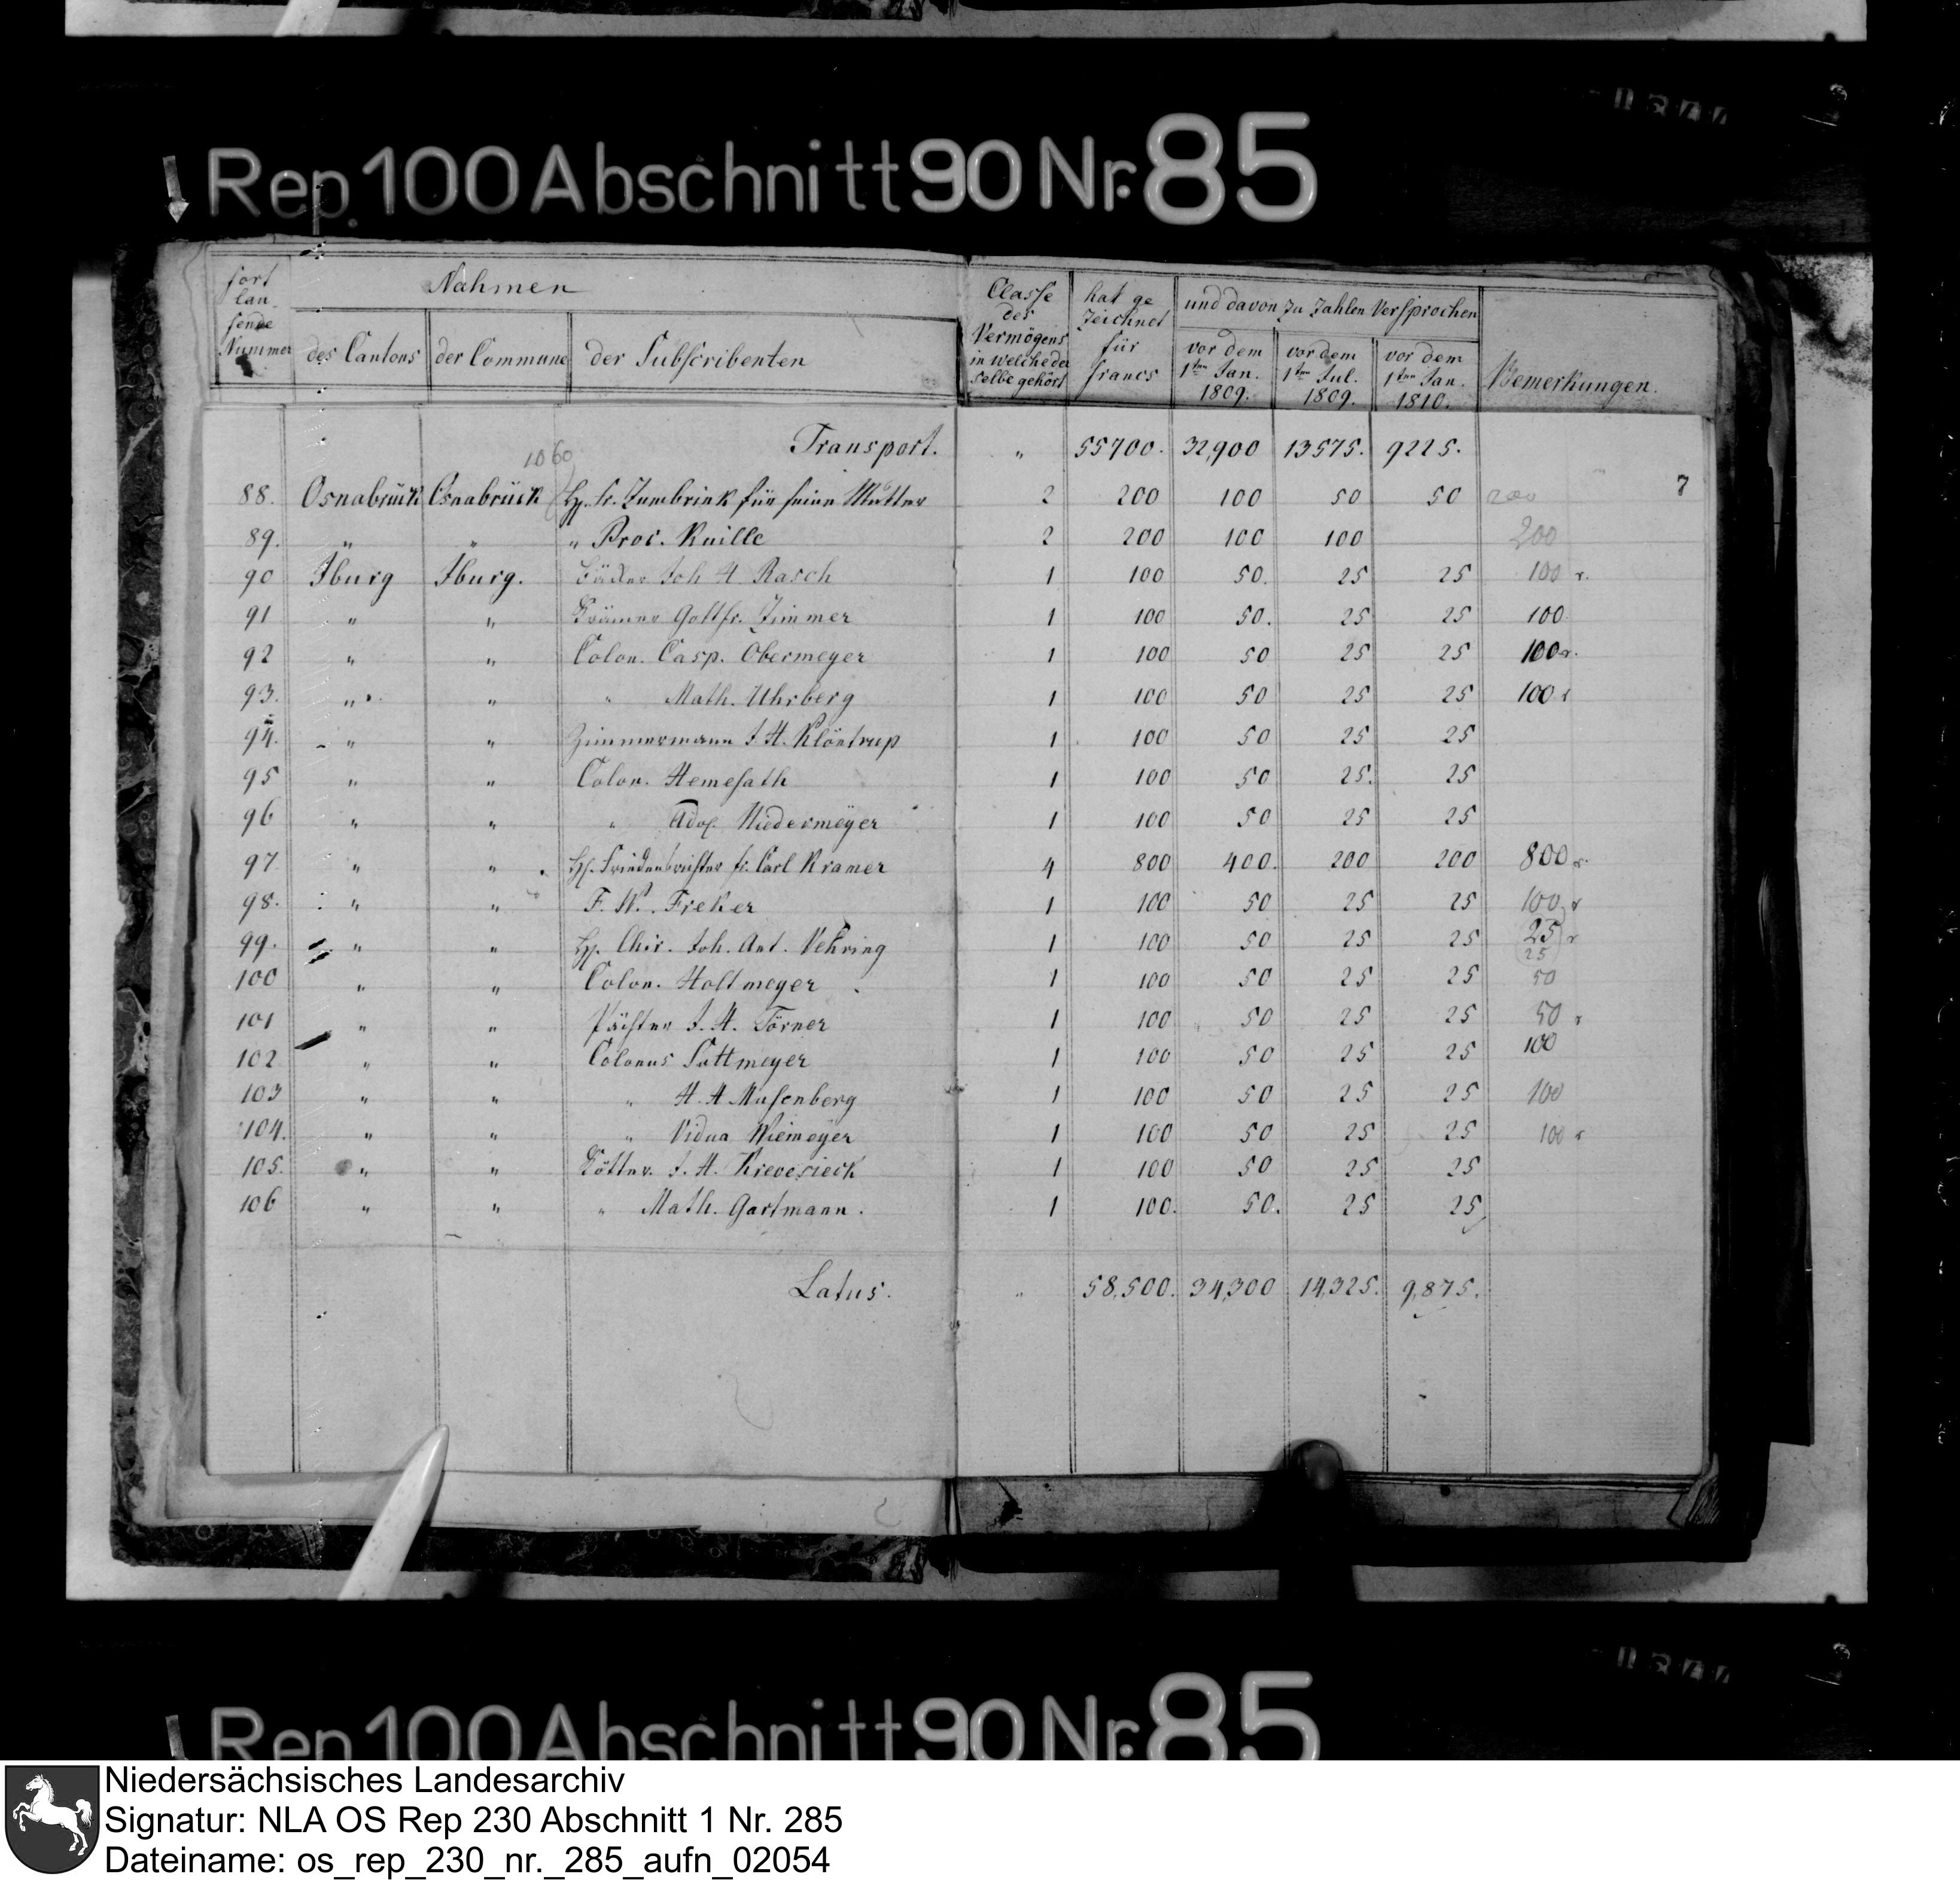 Rep. 100 Abschnitt 90 Nr. 85
fort lau- fende Nummer
Nahmen
des Cantons
der Commune
der Subscribenten
Classe des Vermögens in welche der selbe gehört
hat ge zeichnet für francs
und davon zu zahlen versprochen
vor dem 1ten Jan. 1809.
vor dem 1ten Jul. 1809.
vor dem 1ten Jan. 1810.
Bemerkungen.
Transport. " 55700. 32,900 13575. 9225.
1060
7
88. Osnabrück Osnabrück H. Zumbrink für seine Mutter 2 200 100 50 50 200
89. " " " Proc. Kuille 2 200 100 100 200
90 Iburg Iburg. Joh H Rasch 1 100 50. 25 25 100 r.
91 " " Krämer Gottfr. Zimmer 1 100 50. 25 25 100
92 " " Colon. Casp. Obermeyer 1 100 50 25 25 100 r.
93. " " " Math. Uhrberg 1 100 50 25 25 100 r
94. " " Zimmermann J. H. Klöntrup 1 100 50 25 25
95 " " Colon. Hemesath 1 100 50 25. 25
96 " " " Adol. Niedermeyer 1 100 50 25 25
97 " " H. Friedensrichter Carl Kramer 4 800 400. 200 200 800 r.
98. " " F. W. Freker 1 100 50 25 25 100 r
99. " " H. Chir. Joh. Ant. Vehring 1 100 50 25 25 25 r
25
100 " " Colon. Holtmeyer 1 100 50 25 25 50
101 " " Pächter J. H. Törner 1 100 50 25 25 50 r
102 " " Colonus Suttmeyer 1 100 50 25 25 100
103 " " " H. H Musenberg 1 100 50 25 25 100
104. " " " Vidua Niemeyer 1 100 50 25 25 100 r
105. " " Kötter J. H. Krevesieck 1 100 50 25 25
106 " " " Math. Gartmann. 1 100. 50. 25 25
Latus. " 58,500. 34,300 14,325. 9,875.
Rep 100 Abschnitt 90 Nr. 85
Niedersächsisches Landesarchiv
Signatur: NLA OS Rep 230 Abschnitt 1 Nr. 285
Dateiname: os_rep_230_nr._285_aufn_02054